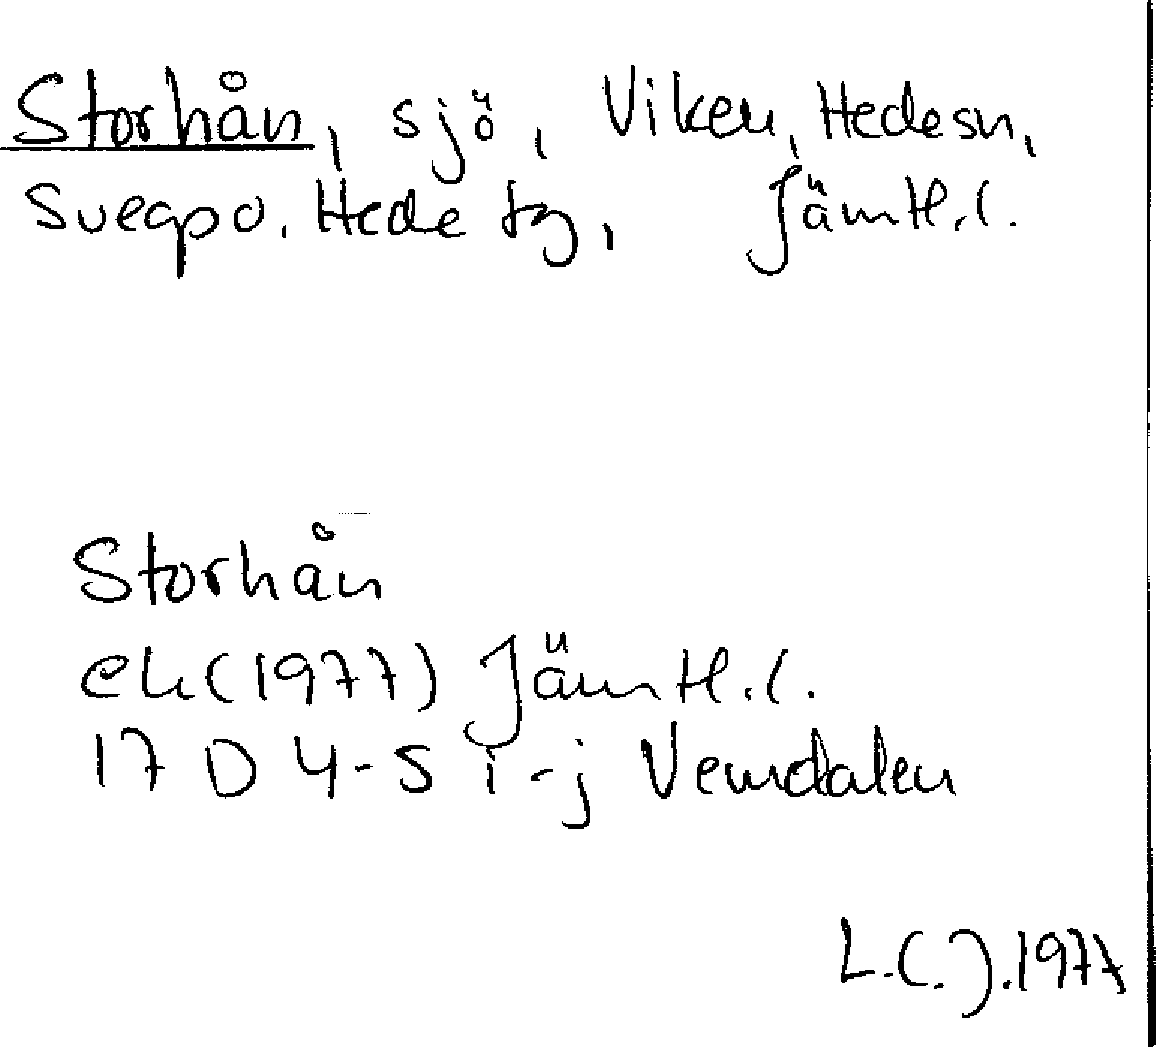 Storhån, sjö, Viken, Hedesn,
Svegpo. Hede tg, Jämtl.l.
Storhån
ek (1977) Jämtl.l.
17 D 4-5 i-j Vemdalen
L.C.J. 1977